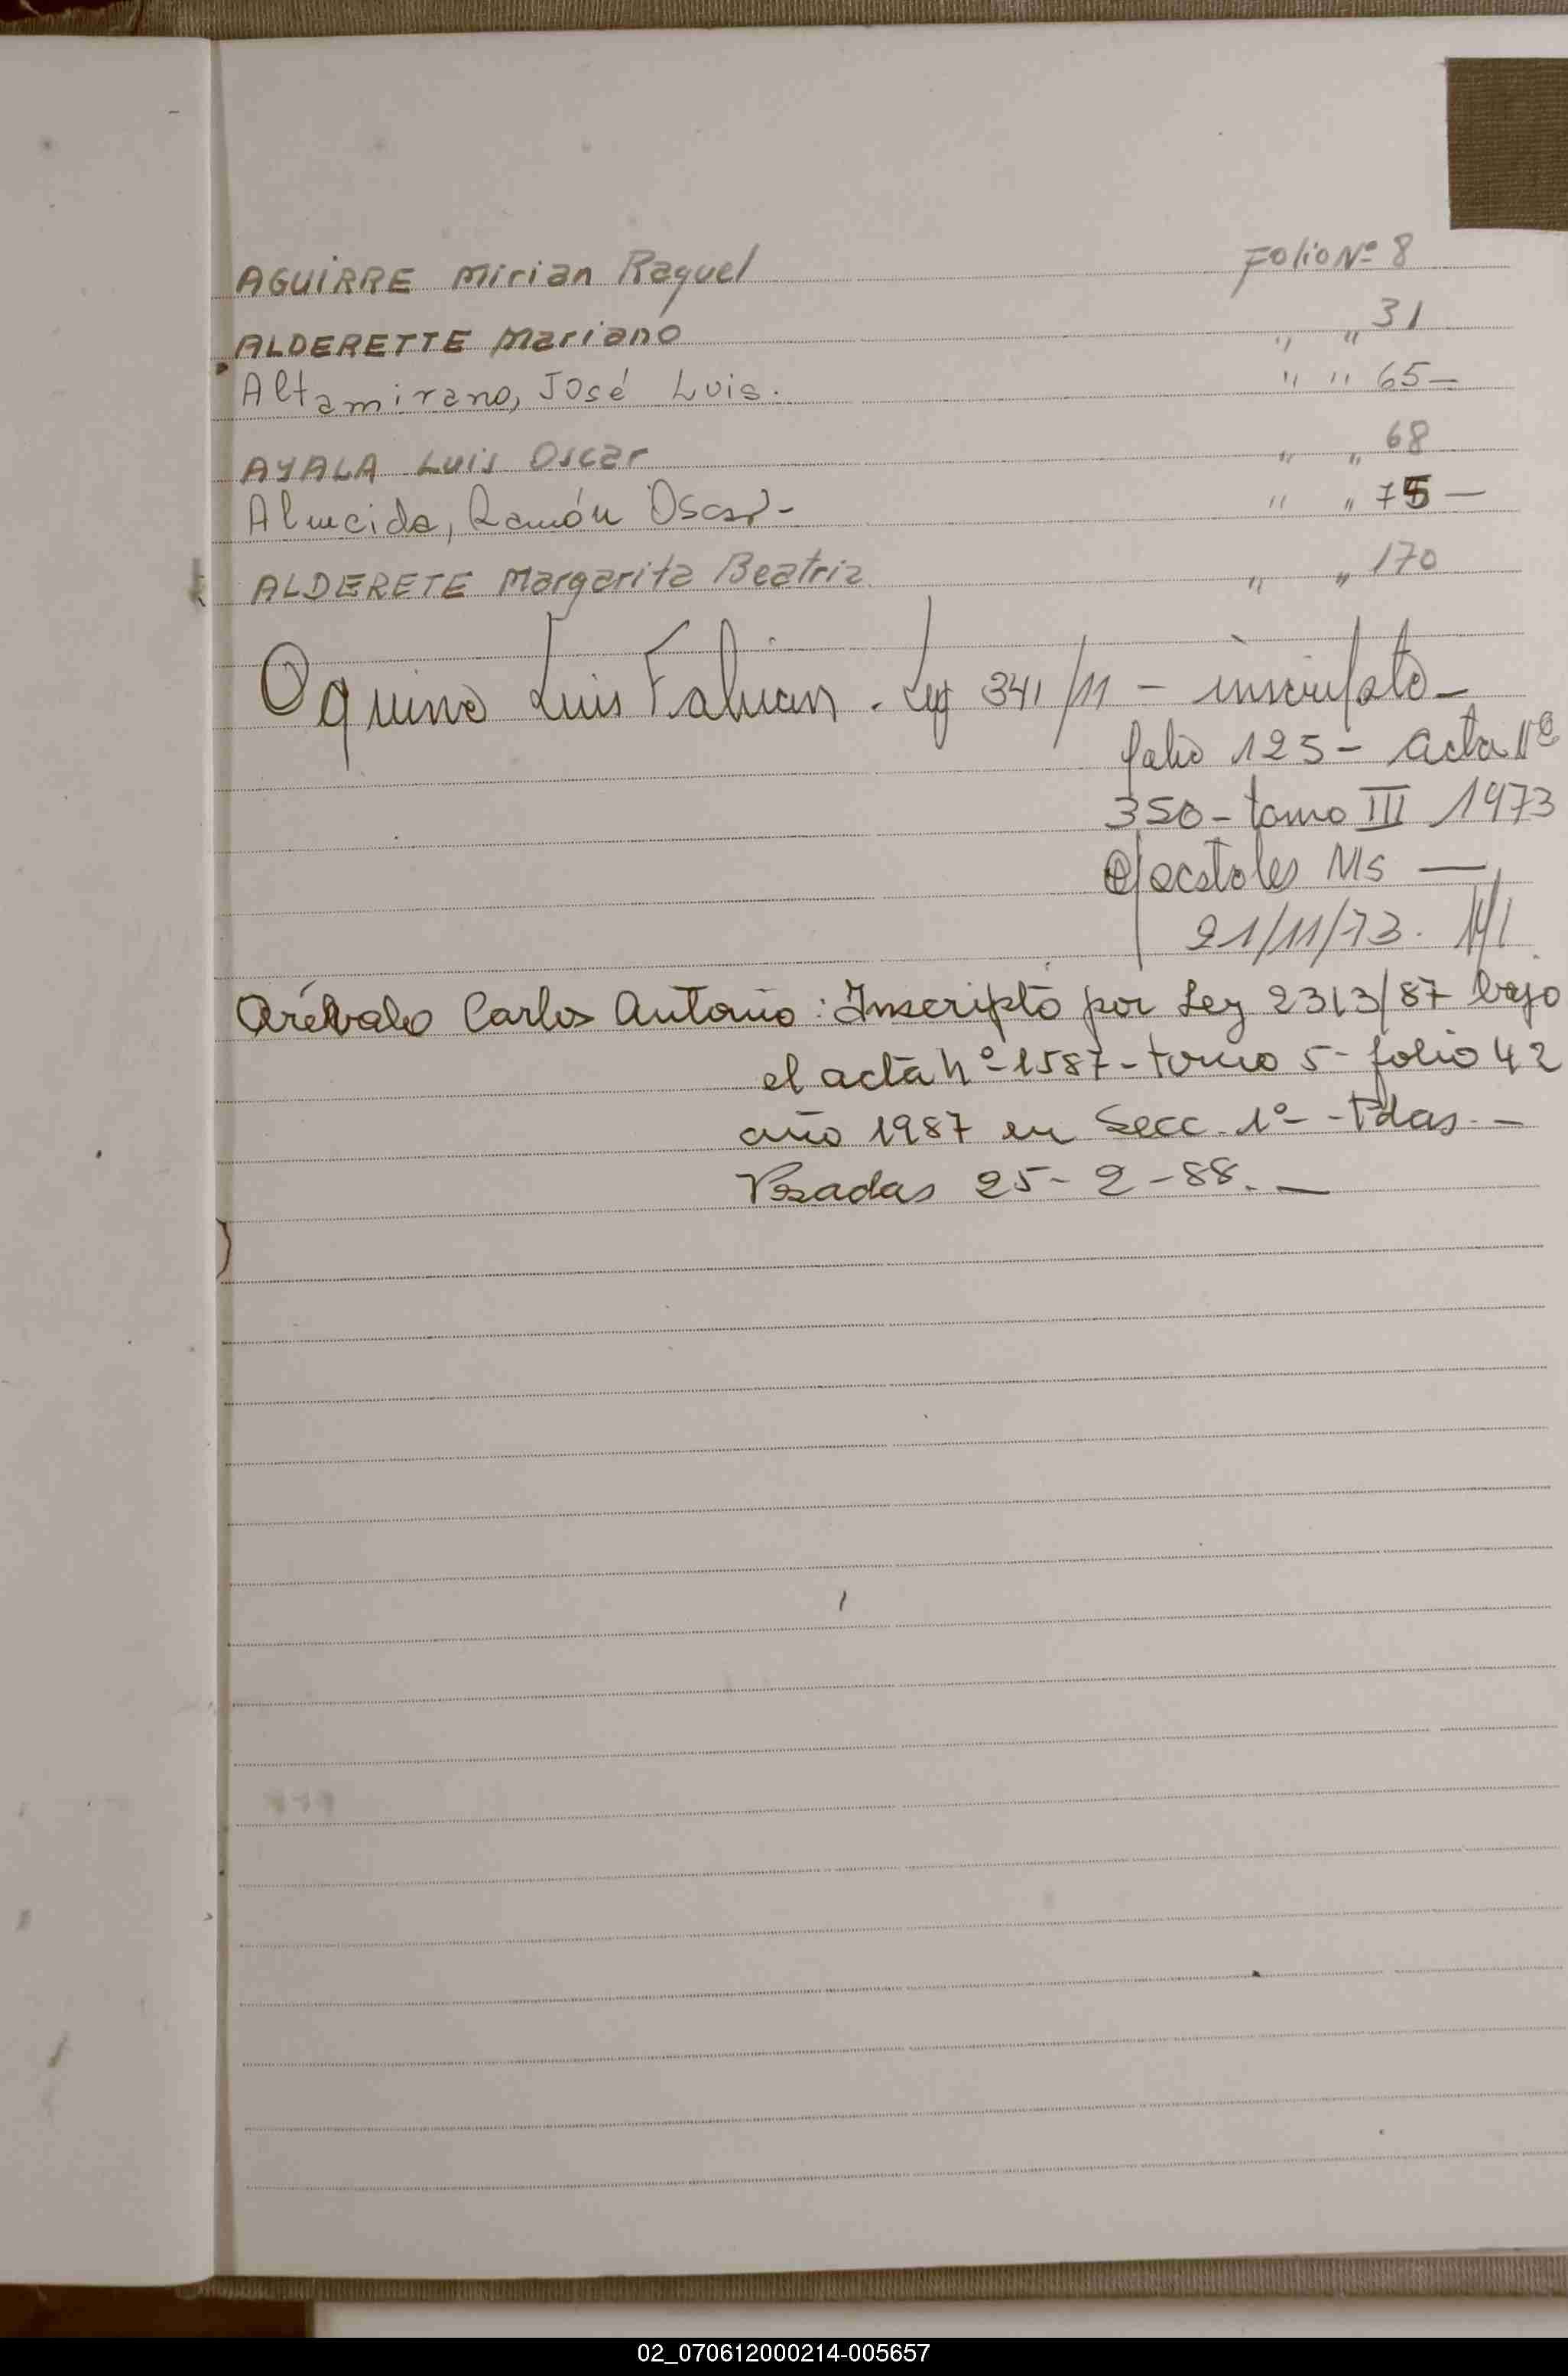 AGUIRRE Mirian Raquel Folio Nº 8
ALDERETTE Mariano " " 31
Altamirano, José Luis. " " 65—
AYALA Luis Oscar " " 68
Almeida, Ramón Oscar- " " 75—
ALDERETE Margarita Beatriz " " 170
Aquino Luis Fabian. Ley 341/11 - inscripto-
folio 125- Acta Nº
350- tomo III 1973
Apostoles Ms —
21/11/73.
Arévalo Carlos Antonio: Inscripto por Ley 2313/87 bajo
el acta nº 1587- tomo 5- folio 42
año 1987 en Secc. 1º - Pdas. -
Posadas 25-2-88. —
02_070612000214-005657